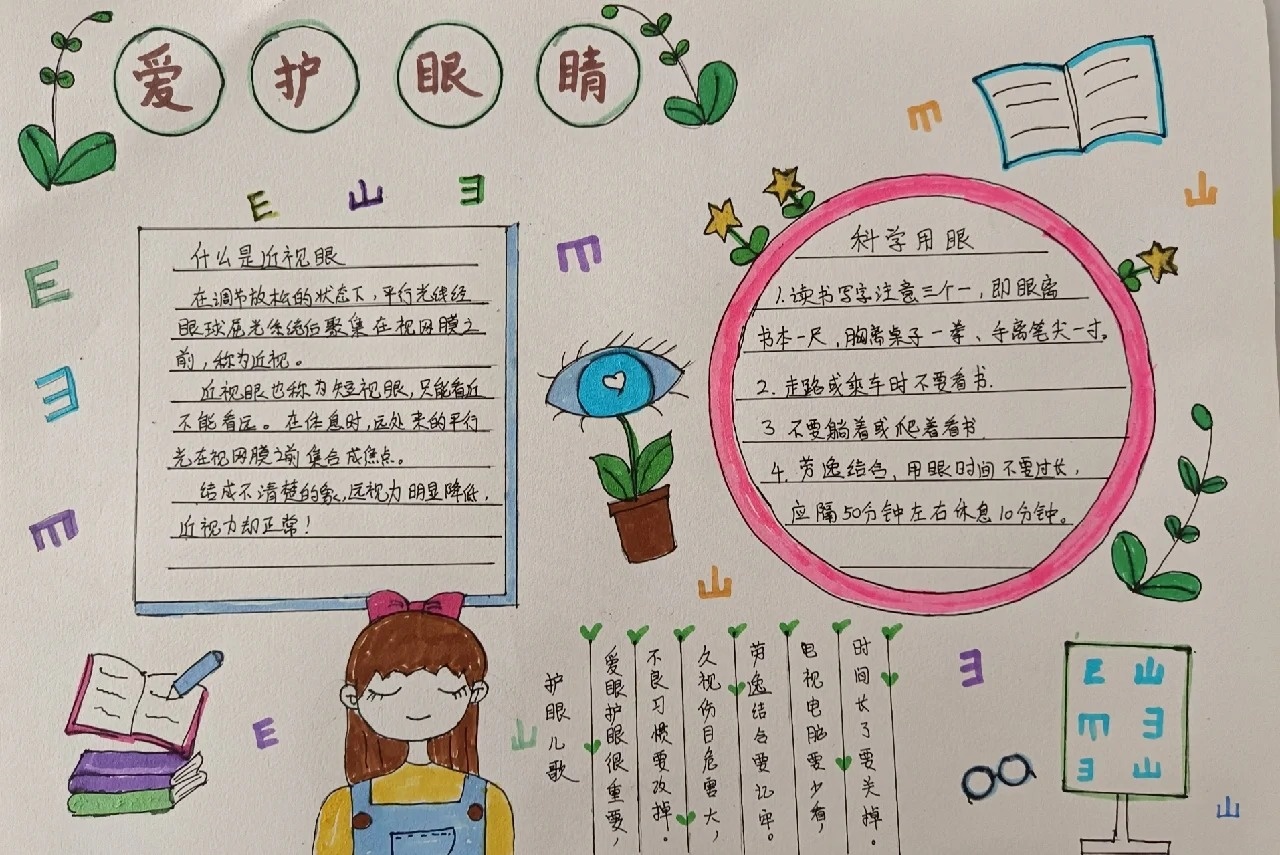 爱护眼睛
E 山 ヨ
什么是近视眼
在调节放松的状态下，平行光线经
眼球屈光系统后聚集在视网膜之
前，称为近视。
近视眼也称为短视眼，只能看近
不能看远。在休息时，远处来的平行
光在视网膜之前集合成焦点。
结成不清楚的象，远视力明显降低，
近视力却正常！
科学用眼
1.读书写字注意三个一，即眼离
书本一尺，胸离桌子一拳、手离笔尖一寸。
2.走路或乘车时不要看书.
3 不要躺着或爬着看书
4.劳逸结合，用眼时间不要过长，
应隔50分钟左右休息10分钟。
护眼儿歌
爱眼护眼很重要，
不良习惯要改掉。
久视伤目危害大，
劳逸结合要记牢。
电视电脑要少看，
时间长了要关掉。
E 山
m ヨ
ヨ 山